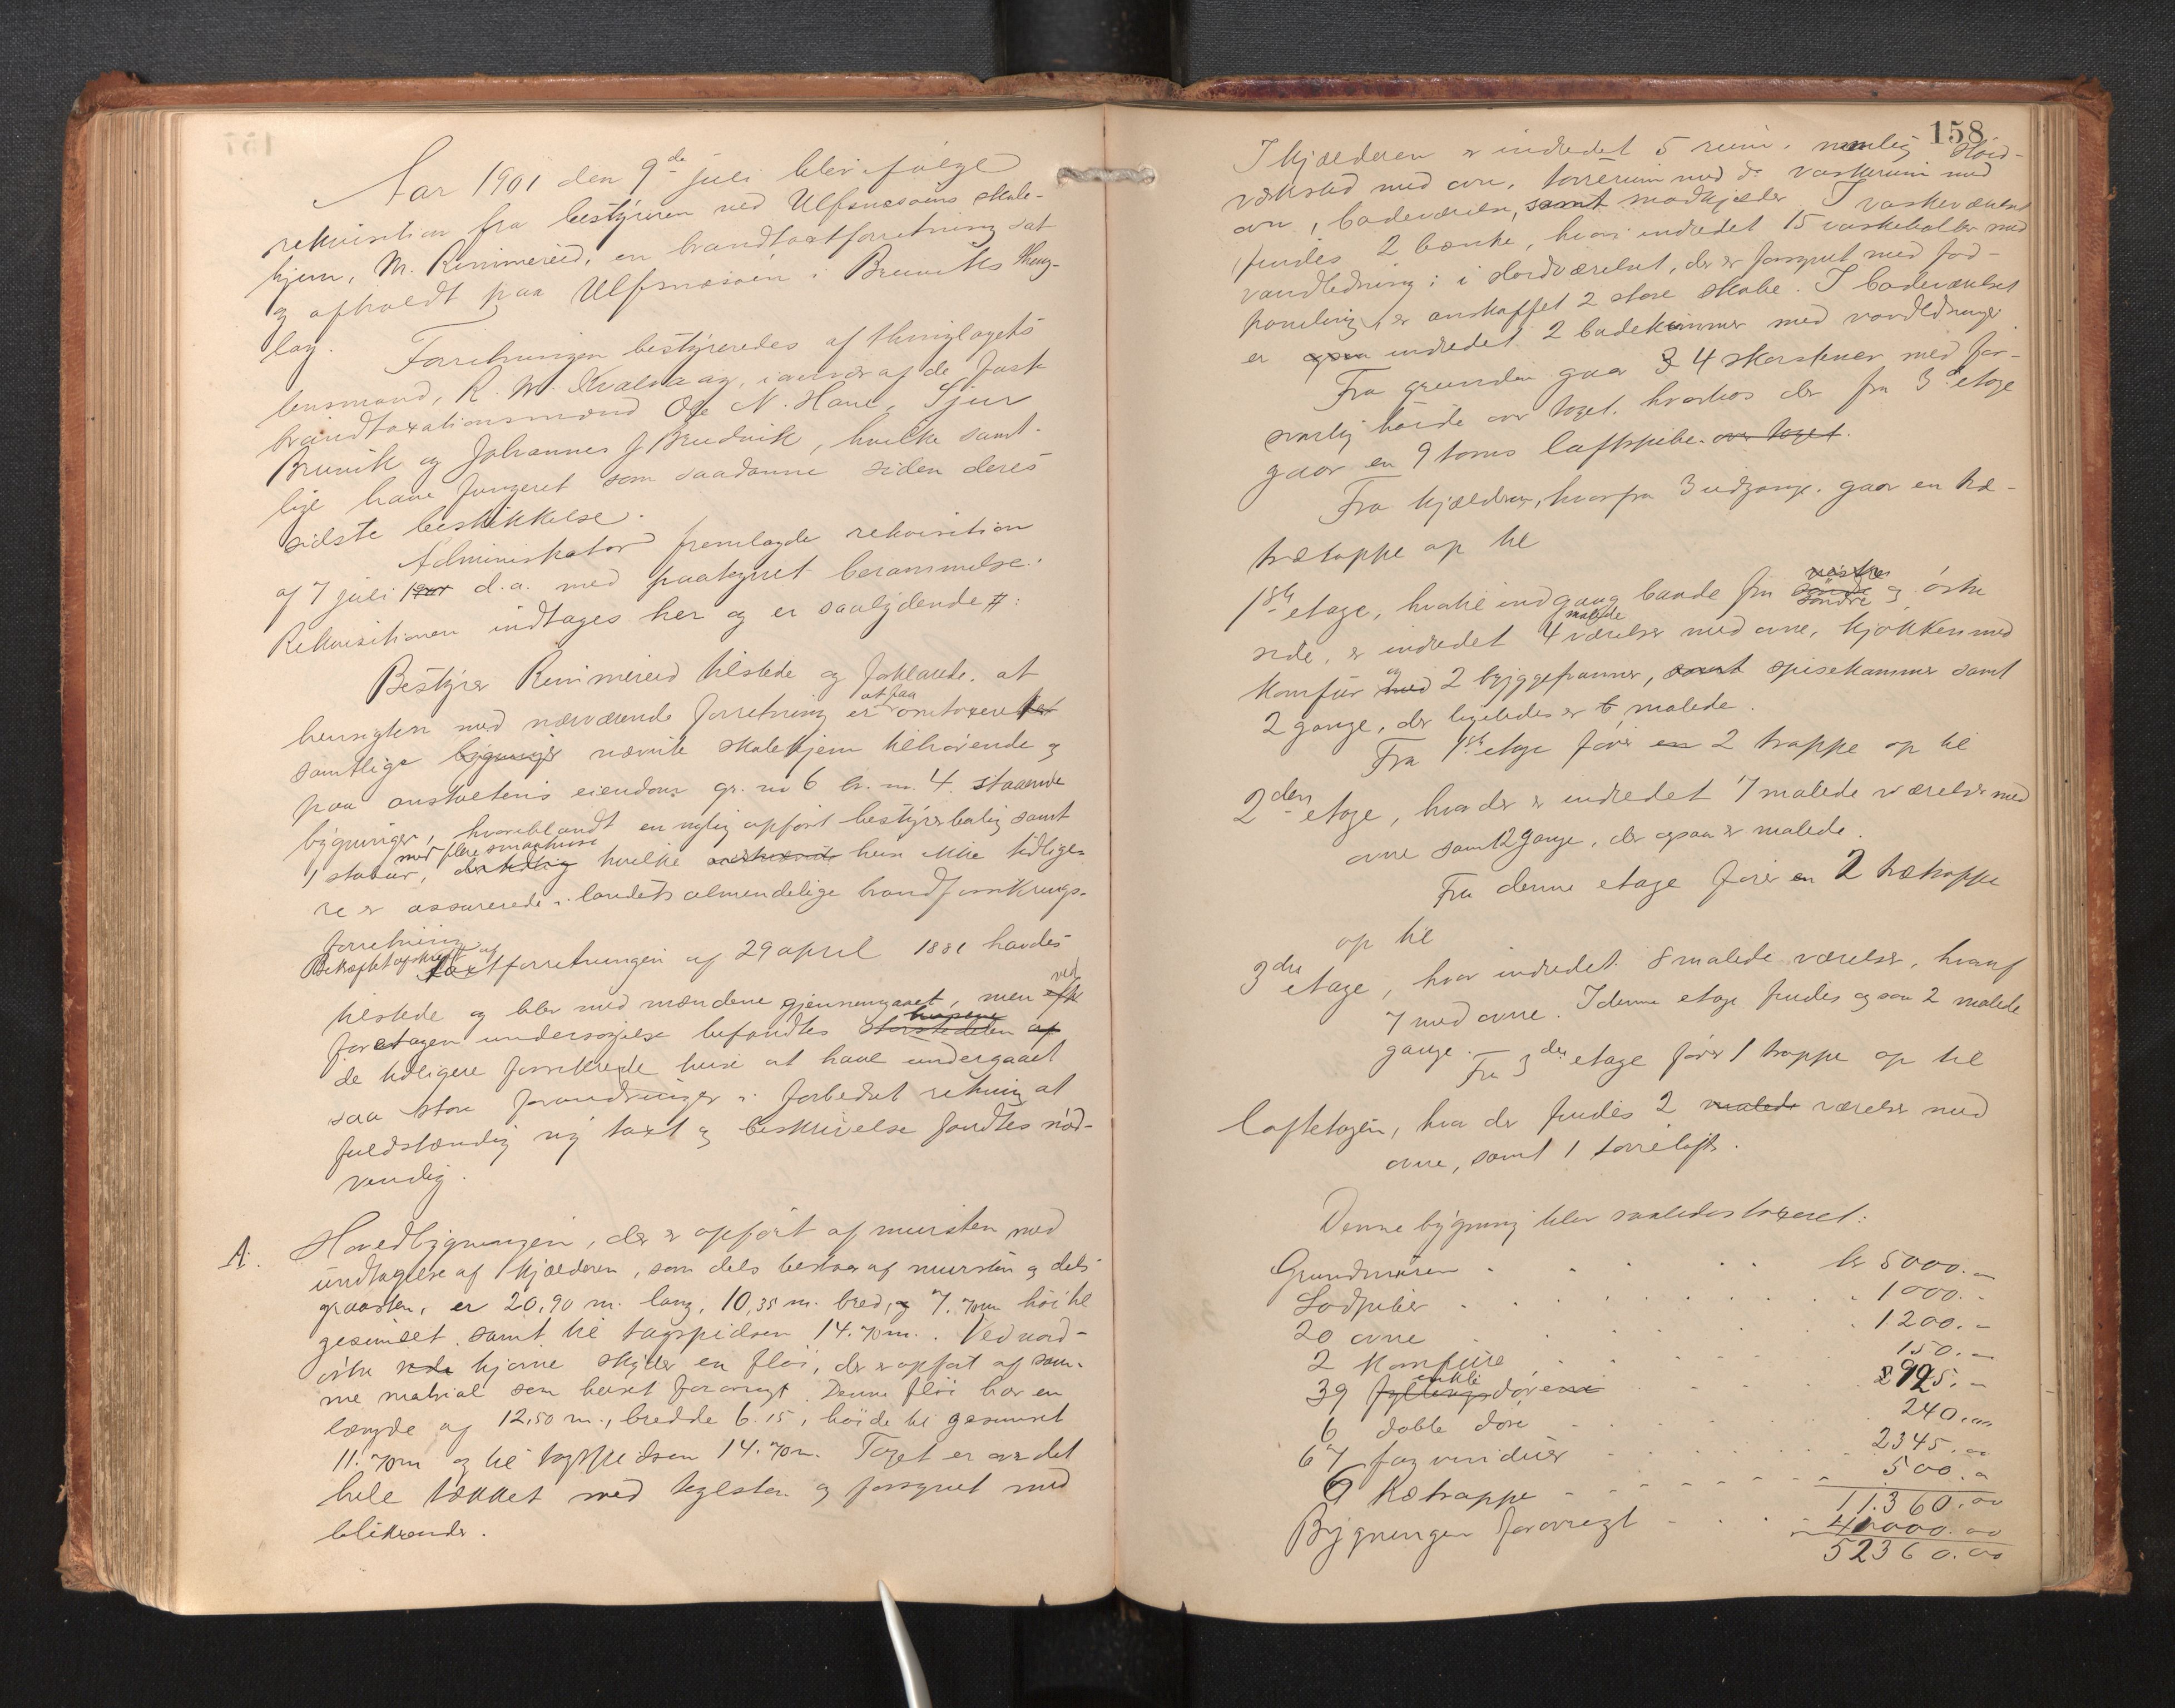 Aar 1901 den 9de juli blev ifølge
rekvisition fra bestyreren ved Ulfsnesøens skole-
hjem, M. Rimmereid, en brandtaxtforretning sat
og afholdt paa Ulfsnesøen i Bruviks thing-
lag.
Forretningen bestyreredes af thinglagets
lensmand, R. M. Kvalvaag, i nærvær af de fast
brandtaxationsmænd Ole N. Hane, Sjur
Bruvik og Johannes J Brudvik, hvilke samt-
lige have fungeret som saadanne siden deres
sidste beskikkelse.
Administrator fremlagde rekvisition
af 7 juli 1901 d.a. med paategnet berammelse.
Rekvisitionen indtages her og er saalydende #:
Bestyrer Rimmereid tilstede og forklarede, at
hensigten med nærværende forretning er at faa omtaxeret
samtlige bygninger nævnte skolehjem tilhørende og
paa anstaltens eiendom gr. no 6 br. no. 4. staaende
bygninger, hvoriblandt en nylig opført bestyrerbolig samt
1 stabur, med flere smaahuse hvilke huse ikke tidlige-
re er assurerede i landets almendelige brandforsikrings-
forretning.
Bekræftet afskrift af taxtforretningen af 29 april 1881 havdes
tilstede og blev med mændene gjennemgaaet, men ved
foretagen undersøgelse befandtes husene størstedelen af
de tidligere forsikrede huse at have undergaaet
saa store forandringer i forbedret retning at
fuldstændig ny taxt og beskrivelse fandtes nød-
vendig.
A. Hovedbygningen, der er opført af mursten med
undtagelse af kjælderen, som dels bestaar af mursten og dels
graasten, er 20,90 m. lang, 10,35 m. bred, og 7.70m høi til
gesimset samt til tagspidsen 14.70m. Ved nord-
østre side hjørne skyder en fløi, der er opført af sam-
me material som huset forøvrigt. Denne fløi har en
længde af 12,50 m., bredde 6.15, høide til gesimset
11.70m og til tagspidsen 14.70m. Taget er over det
hele tækket med teglsten og forsynet med
blikrender.
158
I kjælderen er indredet 5 rum, nemlig sløid-
værksted med ovn, tørrerum med do vaskerum med
ovn, badeværelse, samt madkjælder. I vaskeværelset
findes 2 bænke, hvori indredet 15 vaskeballer med
vandledning; i sløidværelset, der er forsynet med fod-
paneling, er anskaffet 2 store skabe. I badeværelset
er ogsaa indredet 2 badekummer med vandledninger.
Fra grunden gaar 3 4 skorstener med for-
svarlig høide over taget, hvorhos der fra 3die etage
gaar en 9 toms luftpibe over taget.
Fra kjælderen, hvorfra 3 udgange, gaar en træ-
trætappe op til
1ste etage, hvortil indgang baade fra vestre søndre og østre
side, er indredet 4 malede værelser med ovne, kjøkken med
komfur med og 2 byggepanner, samt spisekammer samt
2 gange, der ligeledes er malede.
Fra 1ste etage fører en 2 trappe op til
2den etage, hvor der er indredet 7 malede værelser med
ovne samt 2 gange, der ogsaa er malede.
Fra denne etage fører en 2 trætrappe
op til
3die etage, hvor indredet 8 malede værelser, hvoraf
7 med ovne. I denne etage findes ogsaa 2 malede
gange.
Fra 3die etage fører 1 trappe op til
loftetagen, hvor der findes 2 malede værelser med
ovne, samt 1 tørreloft.
Denne bygning blev saaledes taxeret:
Grundmuren . . . . kr 5000.-
Lodpiber . . . . 1000.-
20 ovne . . . . 1200.-
2 komfure . . . . 150.-
39 fyllings enkle døre . . . . 925.-
6 doble døre . . . . 240.00
67 fag vinduer . . . . 2345.00
6 trætrappe . . . . 500.-
11.360.00
Bygningen forøvrigt . . . . 41000.00
52360.00